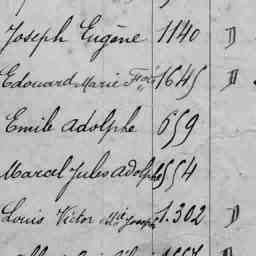 Joseph Eugène 1140 D
Edouard Marie Fçois 1645 D
Emile Adolphe 659
Marcel Jules Adolphe 554
Louis Victor Mie Joseph 1.302 D